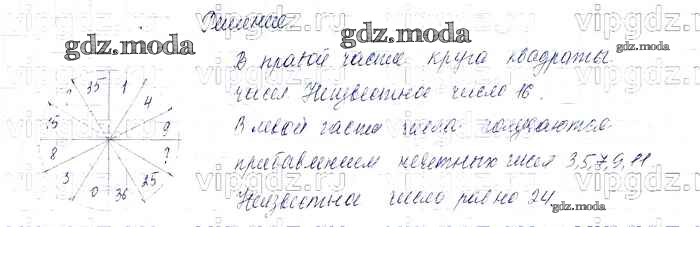 Решение
В правой части круга квадраты
чисел Неизвестное число 16.
В левой части числа получаются
прибавлением нечетных чисел 3,5,7,9,11
Неизвестное число равно 24
35 1
? 4
15 9
8 ?
3 25
0 36
gdz.moda
gdz.moda
gdz.moda
gdz.moda
gdz.moda
vipgdz.ru